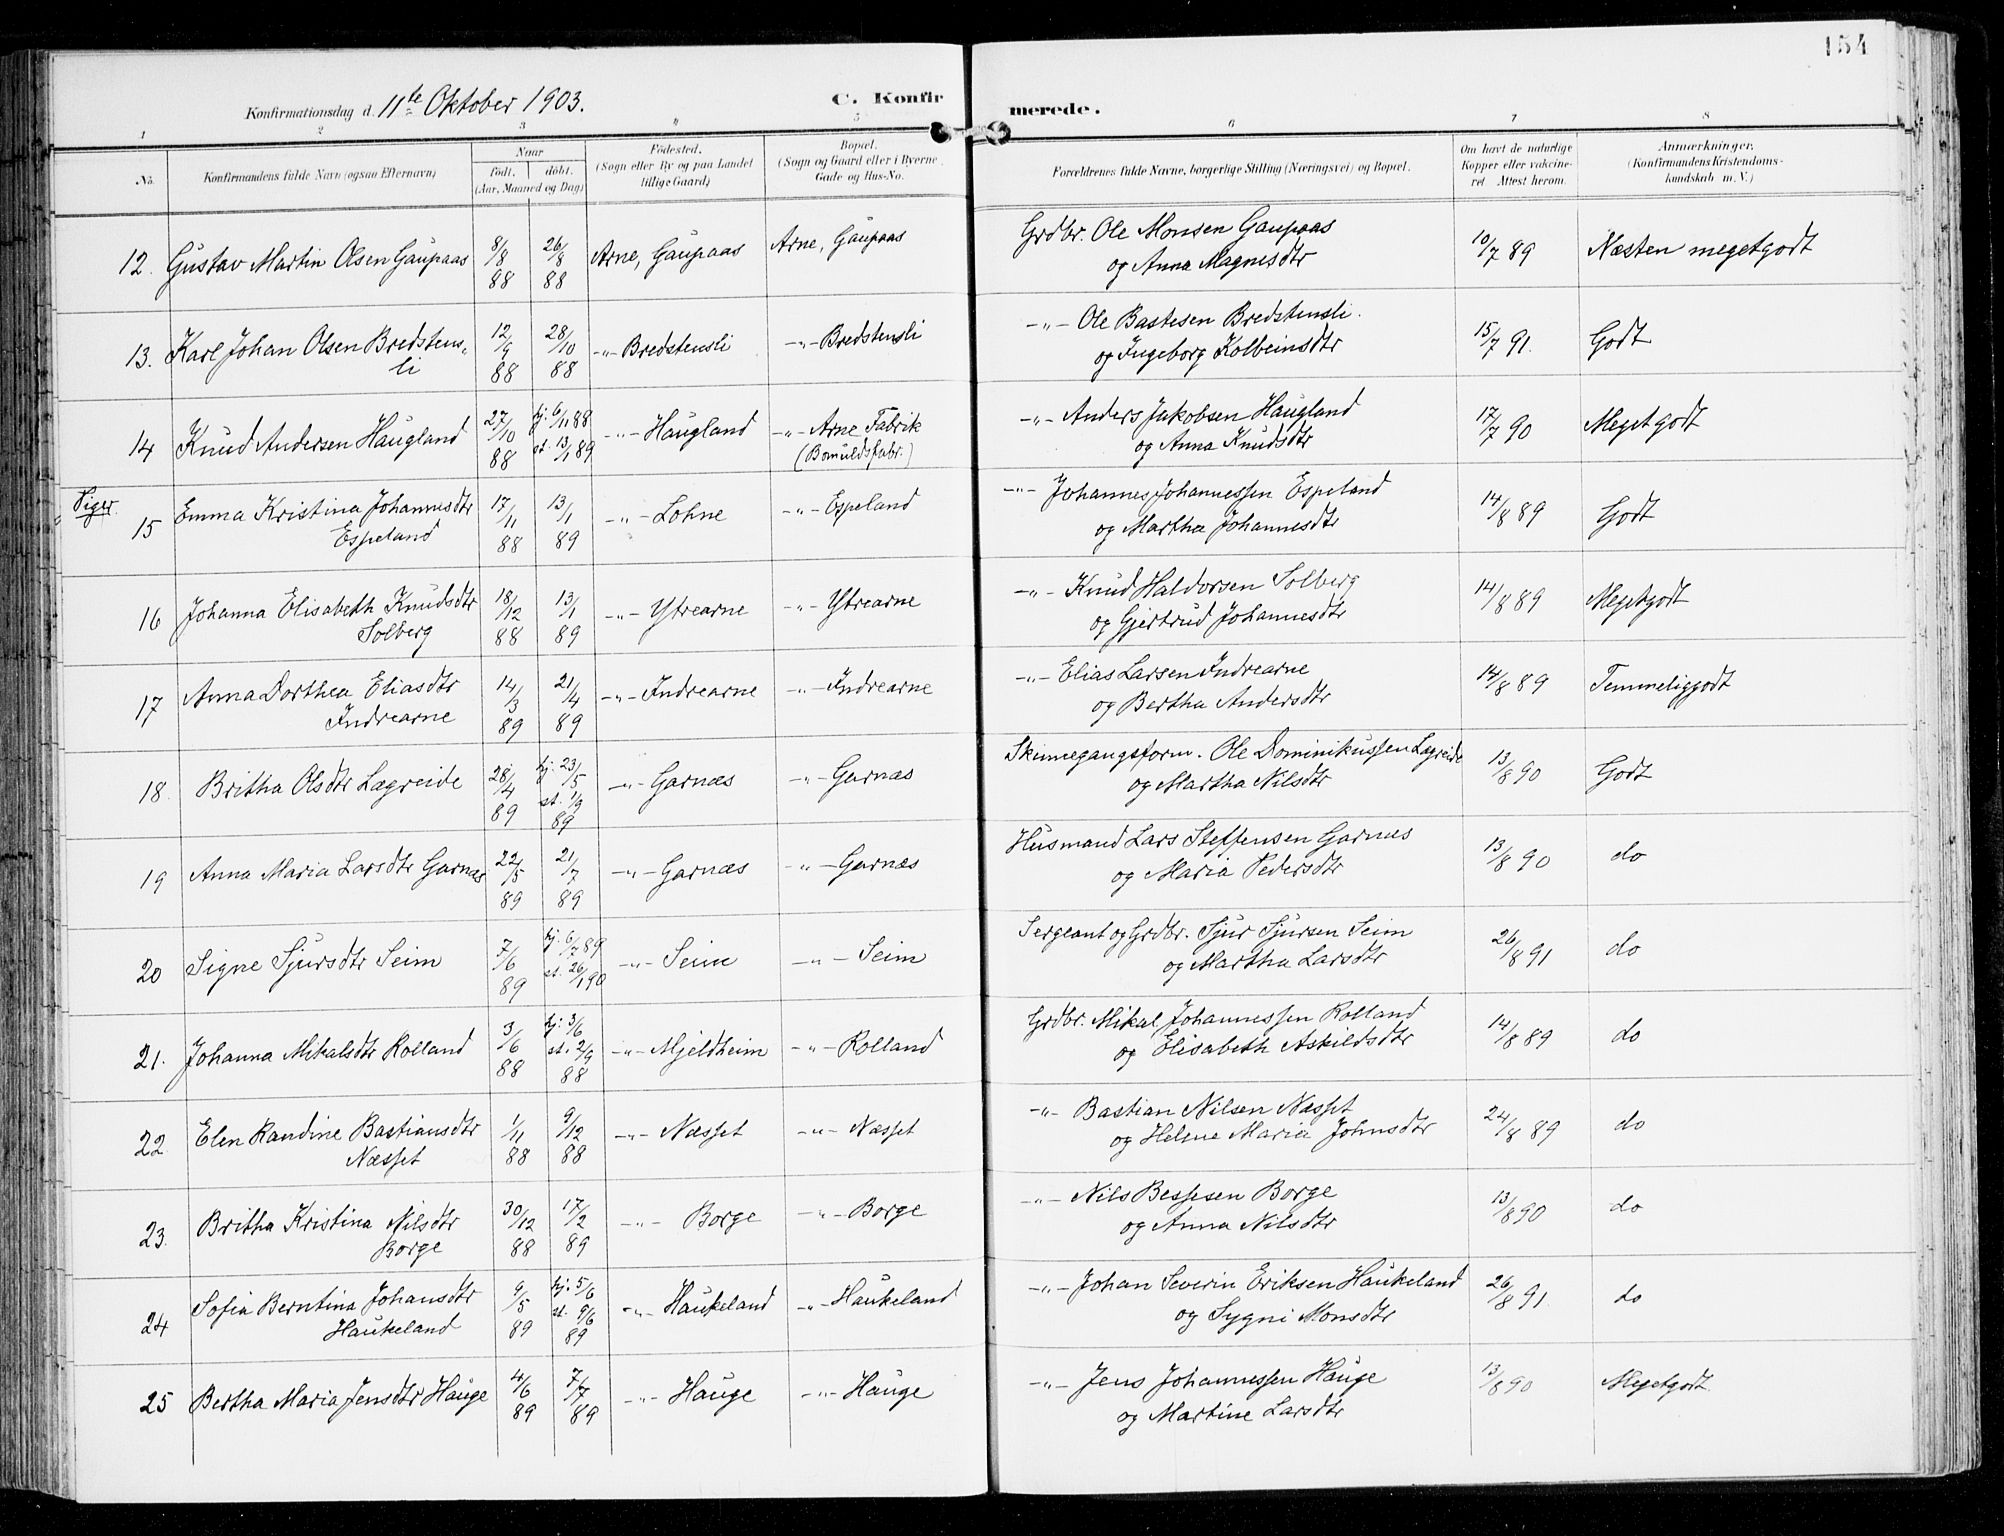 154
Konfirmationsdag d. 11te Oktober 1903.
C. Konfirmerede.
1 2 3 4 5 6 7 8
No. Konfirmandens fulde Navn (ogsaa Efternavn) Naar født. døbt. (Aar, Maaned og Dag) Fødested. (Sogn eller By og paa Landet tillige Gaard) Bopæl. (Sogn og Gaard eller i Byerne Gade og Hus-No. Forældrenes fulde Navne, borgerlige Stilling (Næringsvei) og Bopæl. Om havt de naturlige Kopper eller vakcineret Attest herom. Anmærkninger. (Konfirmandens Kristendomskundskab m. V.)
12. Gustav Martin Olsen Gaupaas 8/8 88 26/8 88 Arne, Gaupaas Arne, Gaupaas Grdbr. Ole Monsen Gaupaas og Anna Magnesdtr 10/7 89 Næsten megetgodt
13. Karl Johan Olsen Bredstensli 12/9 88 28/10 88 -"- Bredstensli -"- Bredstensli -"- Ole Bastesen Bredstensli. og Ingeborg Kolbeinsdtr 15/7 91. Godt
14 Knud Andersen Haugland 27/10 88 hj. 6/11 88 st. 13/1 89 -"- Haugland -"- Arne Fabrik (Bomuldsfabr.) -"- Anders Jakobsen Haugland og Anna Knudsdtr 17/7 90 Megetgodt
Piger.
15 Emma Kristina Johannesdtr Espeland 17/11 88 13/1 89 -"- Lohne -"- Espeland -"- Johannes Johannessen Espeland og Martha Johannesdtr 14/8 89 Godt
16 Johanna Elisabeth Knudsdtr Solberg 18/12 88 13/1 89 -"- Ytrearne -"- Ytrearne -"- Knud Haldorsen Solberg og Gjertrud Johannesdtr 14/8 89 Megetgodt
17 Anna Dorthea Eliasdtr Indrearne 14/3 89 21/4 89 -"- Indrearne -"- Indrearne -"- Elias Larsen Indrearne og Bertha Andersdtr 14/8 89 Temmeliggodt
18. Britha Olsdtr Lægreide 28/4 89 hj. 23/5 st. 1/9 89 -"- Garnæs -"- Garnæs Skinnegangsform. Ole Dominikussen Lægreide og Martha Nilsdtr 13/8 90 Godt
19 Anna Maria Larsdtr Garnæs 22/5 89 21/7 89 -"- Garnæs -"- Garnæs Husmand Lars Steffensen Garnæs og Maria Pedersdtr 13/8 90 do
20 Signe Sjursdtr Seim 7/6 89 hj. 6/7 89 st. 26/1 90 -"- Seim -"- Seim Sergeant og Grdbr. Sjur Sjursen Seim og Martha Larsdtr 26/8 91 do
21. Johanna Mikalsdtr Rolland 3/6 88 hj. 3/6 st. 2/9 88 -"- Mjeldheim -"- Rolland Grdbr. Mikal Johannessen Rolland og Elisabeth Askildsdtr 14/8 89 do
22. Elen Randine Bastiansdtr Næsset 1/11 88 9/12 88 -"- Næsset -"- Næsset -"- Bastian Nilsen Næsset og Helene Maria Johnsdtr 24/8 89 do
23. Britha Kristina Nilsdtr Borge 30/12 88 17/2 89 -"- Borge -"- Borge -"- Nils Bessesen Borge og Anna Nilsdtr 13/8 90 do
24 Sofia Berntina Johansdtr Haukeland 9/5 89 hj. 5/6 st. 9/6 89 -"- Haukeland -"- Haukeland -"- Johan Severin Eriksen Haukeland og Sygni Monsdtr 26/8 91. do
25 Bertha Maria Jensdtr Hauge 4/6 89 7/7 89 -"- Hauge -"- Hauge -"- Jens Johannessen Hauge og Martine Larsdtr 13/8 90 Megetgodt